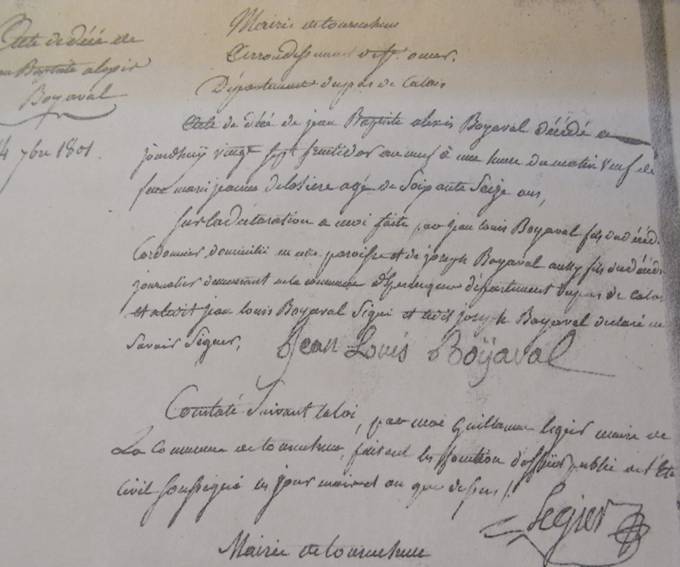 Acte de décé de
Jean Baptiste alexis
Boyaval
14 7bre 1801.
Mairie de tournehem
arrondissement de St. omer.
Département du pas de Calais
Acte de décé de jean Baptiste alexis Boyaval décédé a
jourdhuy vingt sept fructidor an neuf à une heure du matin veuf de
feue marie jeanne delosiere agé de Soixante Seize ans,
Sur la déclaration a moi faite par Jean louis Boyaval fils du décédé
Cordonnier domicilié en cette paroisse et de joseph Boyaval aussy fils du décédé
journalier demeurant en la commune département du pas de calais
et a ledit jean louis Boyaval Signé et ledit joseph Boyaval déclaré ne
Savoir Signer,
Jean Louis Boyaval
Constaté Suivant la loi, par moi Guillaume legier maire de
La Commune de tournehem, faisant les fonction d'officier public de l'Etat
Civil Soussigné les jour mois et an que dessus.
Legier
Mairie de tournehem